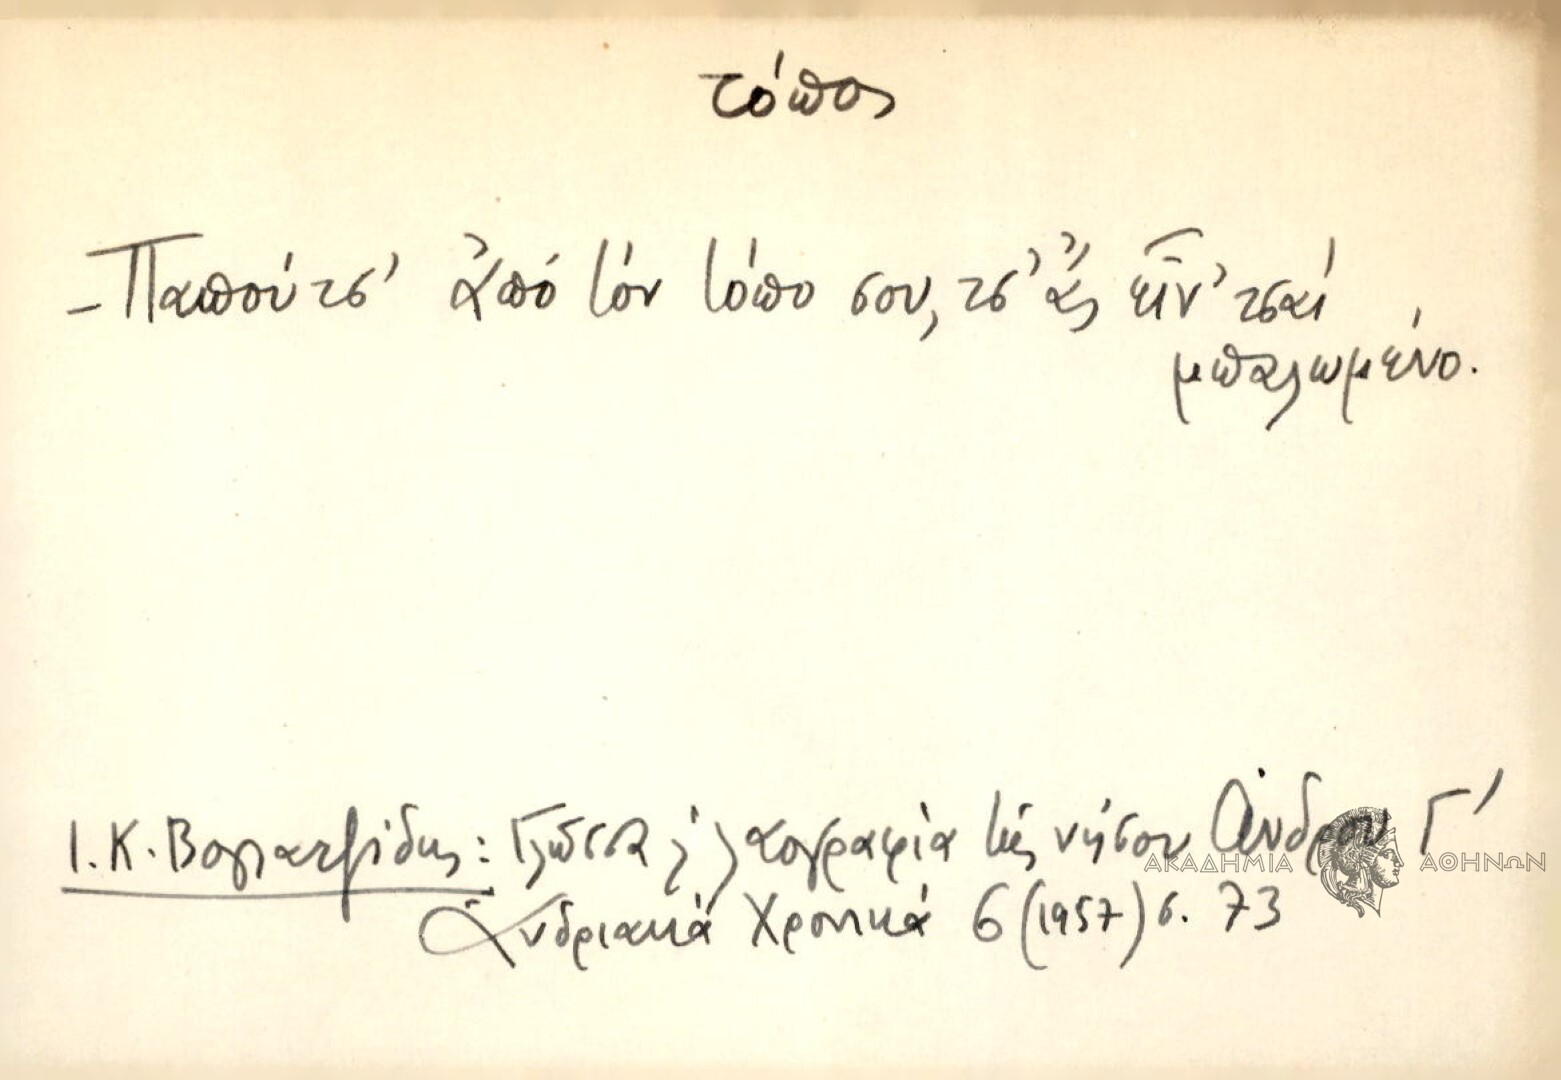 τόπος
- Παπούτσ' ἀπό τόν τόπο σου, τσ' ἄς εἶν' τσαί
μπαλωμένο.
Ι. Κ. Βογιατζίδης: Γλῶσσα κ λαογραφία τῆς νήσου Ἄνδρου Γ'
ΑΚΑΔΗΜΙΑ ΑΘΗΝΩΝ
Ἀνδριακά Χρονικά 6 (1957) σ. 73